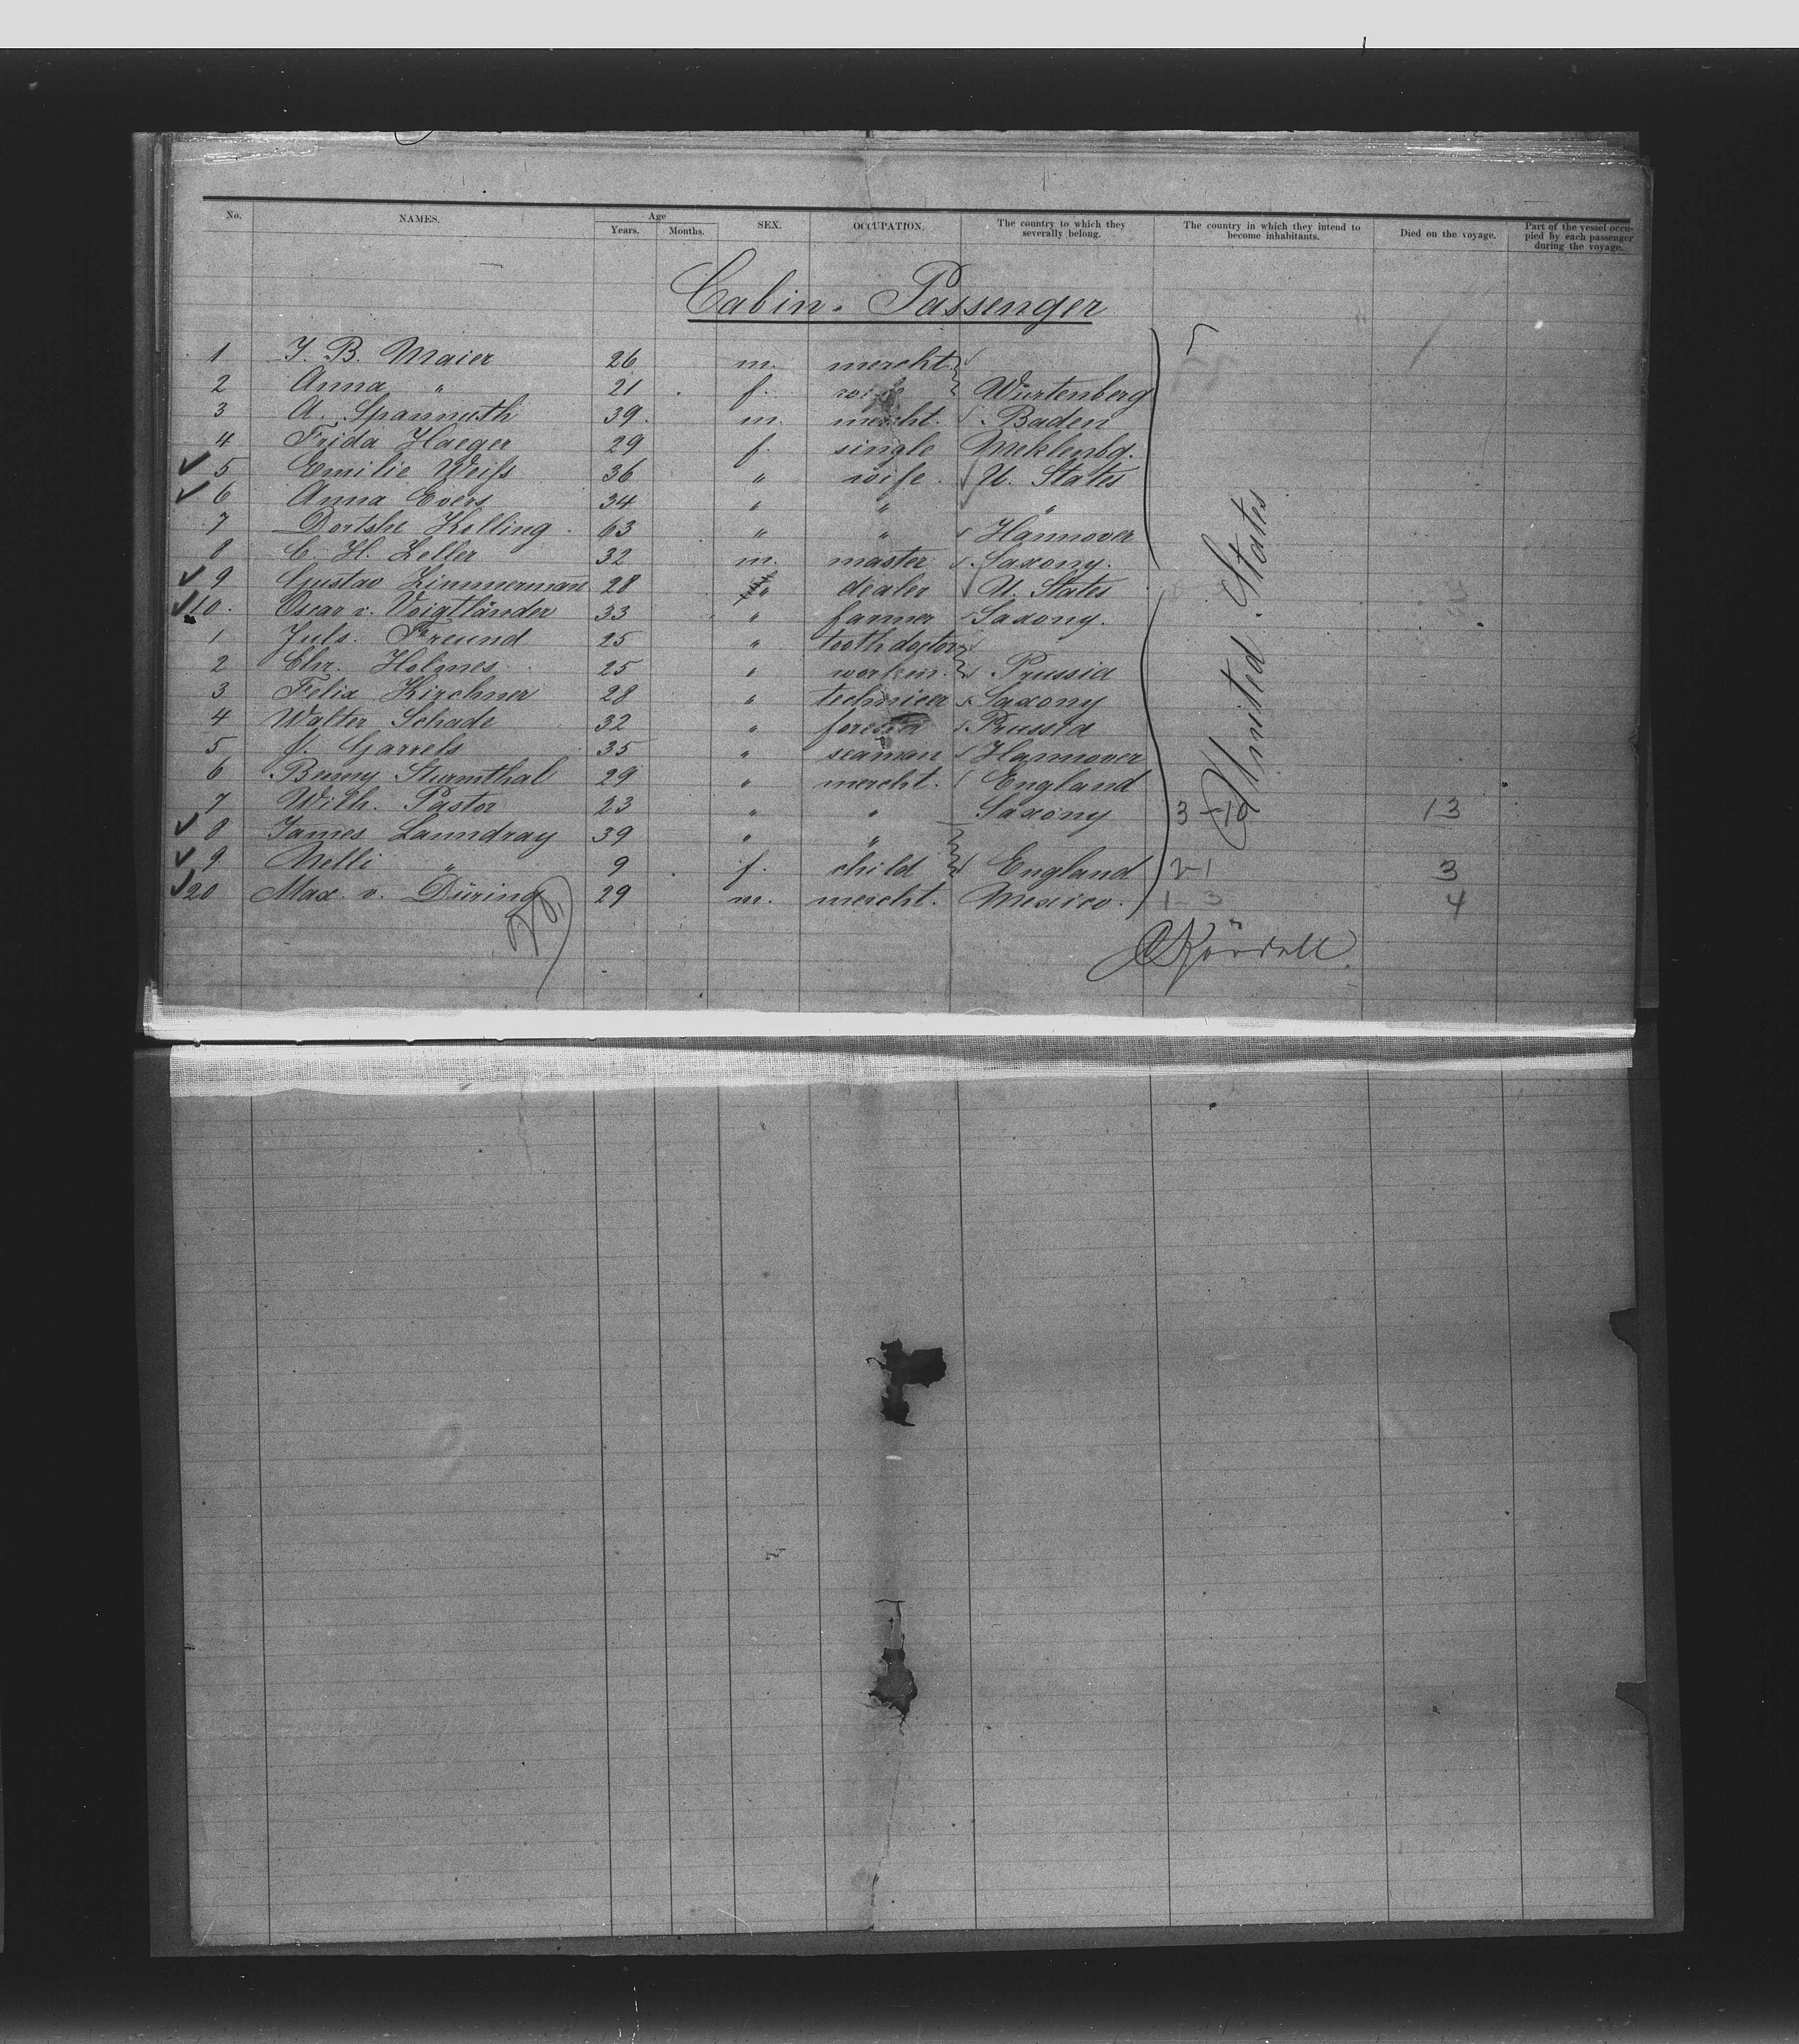 No. NAMES. Age Years. Months. SEX. OCCUPATION. The country to which they severally belong. The country in which they intend to become inhabitants. Died on the voyage. Part of the vessel occupied by each passenger during the voyage.
Cabin-Passenger
1 J. B. Maier 26 m. mercht.
2 Anna " 21 f. wife Würtenberg
3 A. Spannuth 39. m. mercht. Baden
4 Frida Haeger 29 f. single Meklenbg.
✓ 5 Emilie Weifs 36 " wife U. States
✓ 6 Anna Evers 34 " " "
7 Dortshe Kelling 63 " " Hannover
8 C. H. Zeller 32 m. master Saxony.
✓ 9 Gustav Zimmerman 28 " dealer U. States
✓ 10. Oscar v. Voigtländer 33 " farmer Saxony.
1 Juls. Freund 25 " toothdoctor
2 Chr. Holmes 25 " workm. Prussia
3 Felix Kirchner 28 " technicer Saxony
4 Walter Schade 32 " Prussia
5 Garrels 35 " seaman Hannover
6 Benny Sturmthal 29 " mercht. England
7 Wilh. Pastor 23 " " Saxony 3-10 13
✓ 8 James Laundray 39 " "
✓ 9 Nelli " 9 f. child England 2-1 3
✓ 20 Max v. Düring 29 m. mercht. Mexico. 1-3 4
United States
20